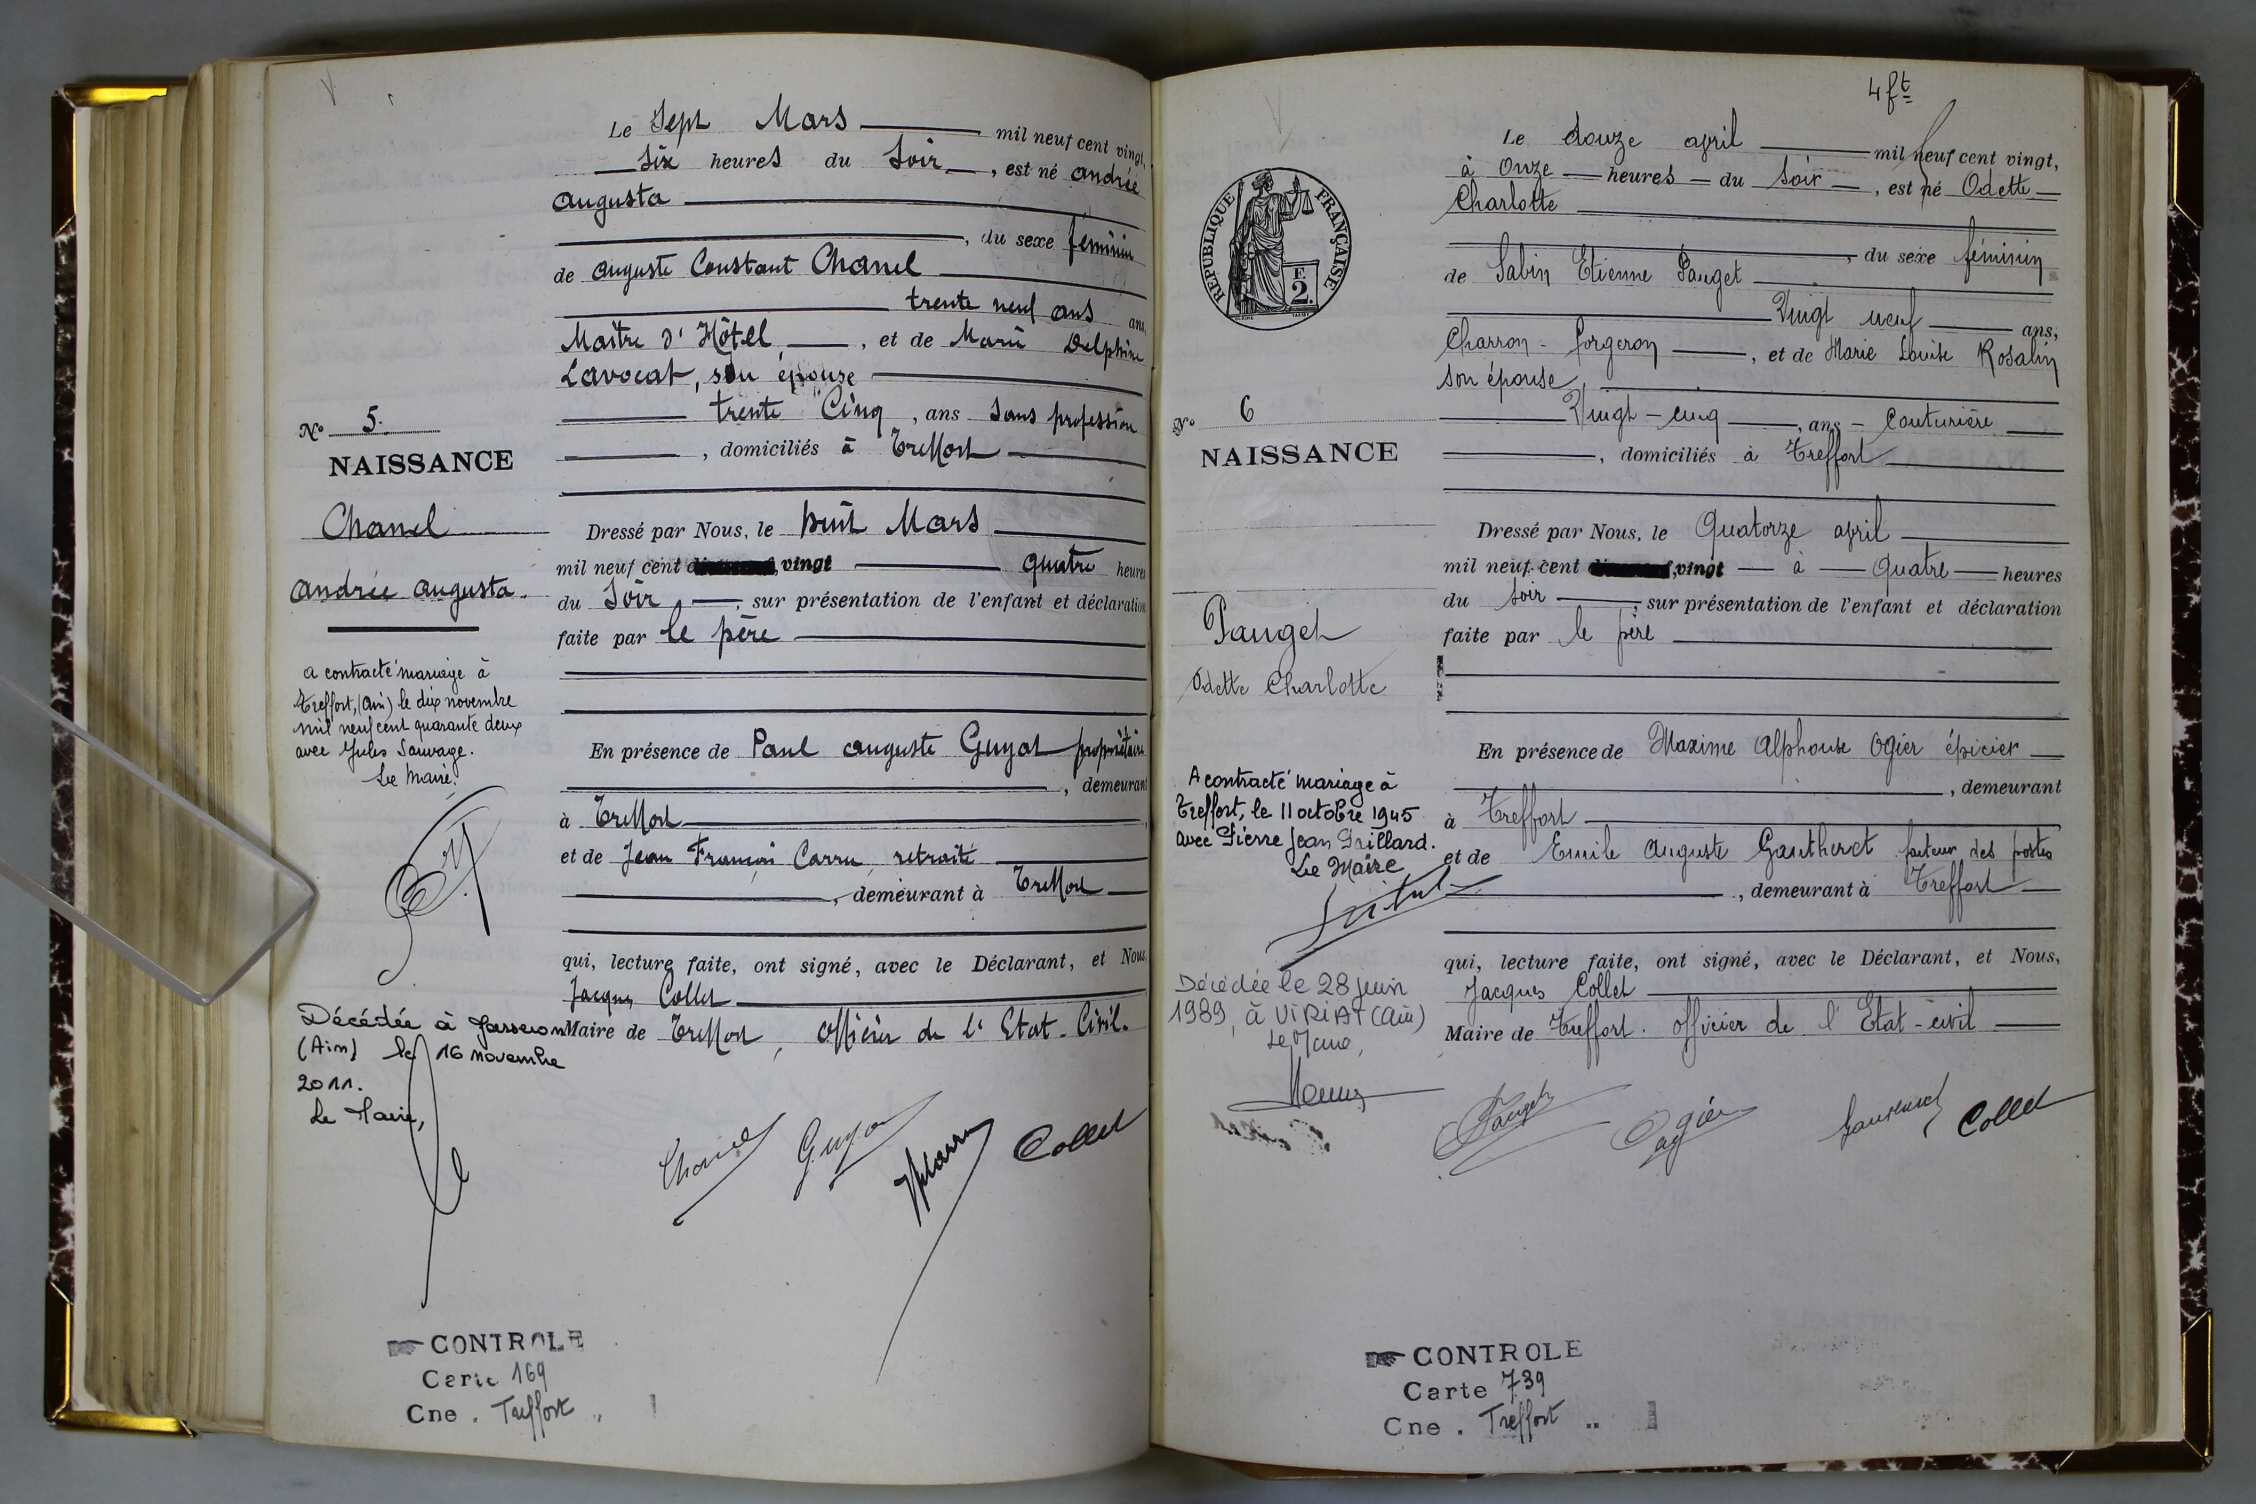 Le Sept Mars mil neuf cent vingt,
six heures du Soir, est né andrée
augusta
, du sexe féminin
de auguste Constant Chanel
trente neuf ans ans,
Maître d'Hôtel, et de Marie Delphine
Lavocat, son épouse
trente Cinq, ans sans profession
, domiciliés à Treffort
Nº 5.
NAISSANCE
Chanel
andrée augusta.
Dressé par Nous, le huit Mars
mil neuf cent vingt quatre heures
du Soir, sur présentation de l'enfant et déclaration
faite par le père
a contracté mariage à
Treffort, (Ain) le dix novembre
mil neuf cent quarante deux
avec Jules Sauvage.
Le Maire.
En présence de Paul auguste Guyot propriétaire
, demeurant
à Treffort
et de Jean François Carru, retraité
, demeurant à Treffort
qui, lecture faite, ont signé, avec le Déclarant, et Nous,
Jacques Collet
Maire de Treffort, officier de l'Etat-Civil.
Décédée à Jasseron
(Ain) le 16 novembre
2011.
Le Maire,
Chanel Guyot Collet
CONTROLE
Carte 169
Cne. Treffort
4 ft
Le douze avril mil neuf cent vingt,
à Onze heures du Soir, est né Odette
Charlotte
, du sexe féminin
de Sabin Etienne Pauget
Vingt neuf ans,
Charron-forgeron, et de Marie Louise Rosalin
son épouse,
Vingt-cinq, ans - Couturière
, domiciliés à Treffort
REPUBLIQUE FRANÇAISE
F.
2.
Nº 6
NAISSANCE
Pauget
Odette Charlotte
Dressé par Nous, le Quatorze avril
mil neuf cent vingt à Quatre heures
du soir, sur présentation de l'enfant et déclaration
faite par le père
A contracté mariage à
Treffort, le 11 octobre 1945
avec Pierre Jean Paillard.
Le Maire
En présence de Maxime Alphonse Ogier épicier
, demeurant
à Treffort
et de Emile Auguste Gautheret facteur des postes
, demeurant à Treffort
qui, lecture faite, ont signé, avec le Déclarant, et Nous,
Jacques Collet
Maire de Treffort. officier de l'Etat-civil
Décédée le 28 juin
1989, à VIRIAT (Ain)
Le Maire,
Pauget Ogier Gautheret Collet
CONTROLE
Carte 739
Cne. Treffort